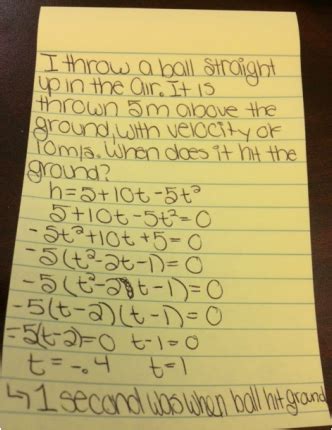 I throw a ball straight
up in the air. It is
thrown 5m above the
ground, with velocity of
10m/s. When does it hit the
ground?
h=5+10t-5t²
5+10t-5t²=0
-5t²+10t+5=0
-5(t²-2t-1)=0
-5(t²-2t-1)=0
-5(t-2)(t-1)=0
-5(t-2)=0 t-1=0
t=-.4 t=1
↳ 1 second was when ball hit ground